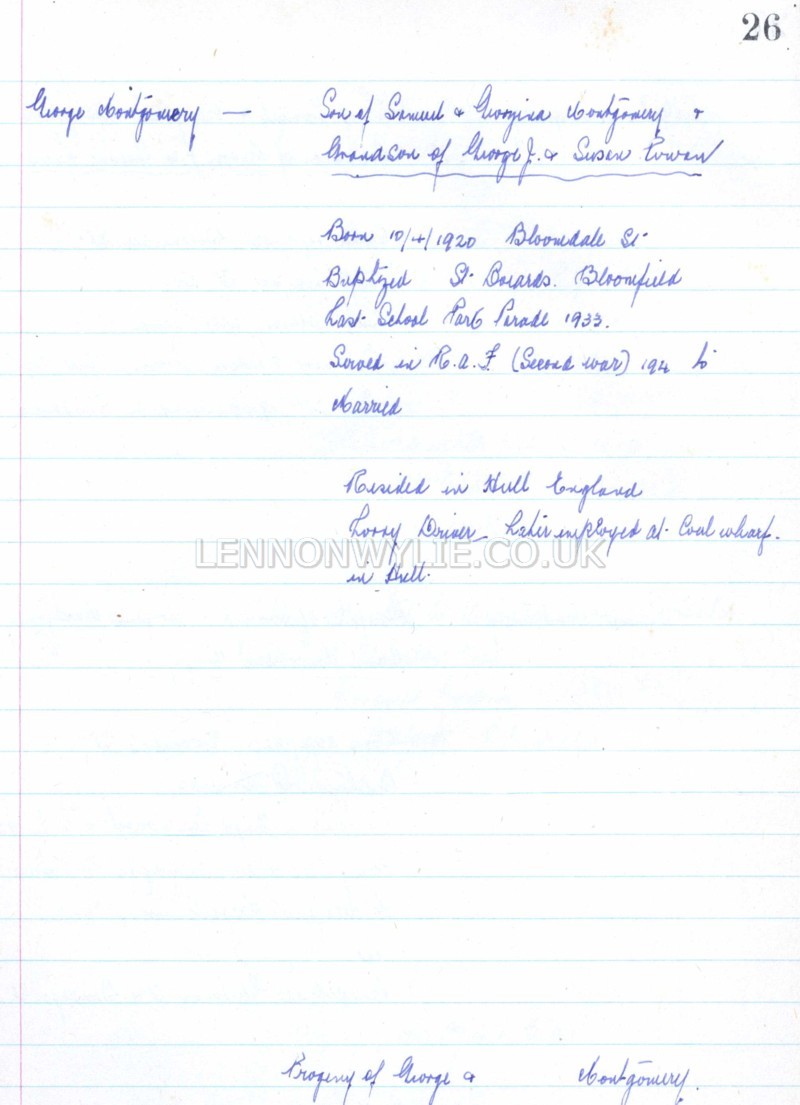 26
George Montgomery — Son of Samuel & Georgina Montgomery &
Grandson of George J. & Susan Rowan
Born 10/4/1920 Bloomdale St.
Baptized St. Donards. Bloomfield
Last School Park Parade 1933.
Served in R.A.F (Second war) 194 to
Married
Resided in Hull England
Lorry Driver Later employed at Coal wharf.
LENNONWYLIE.CO.UK
in Hull.
Progeny of George & Montgomery.